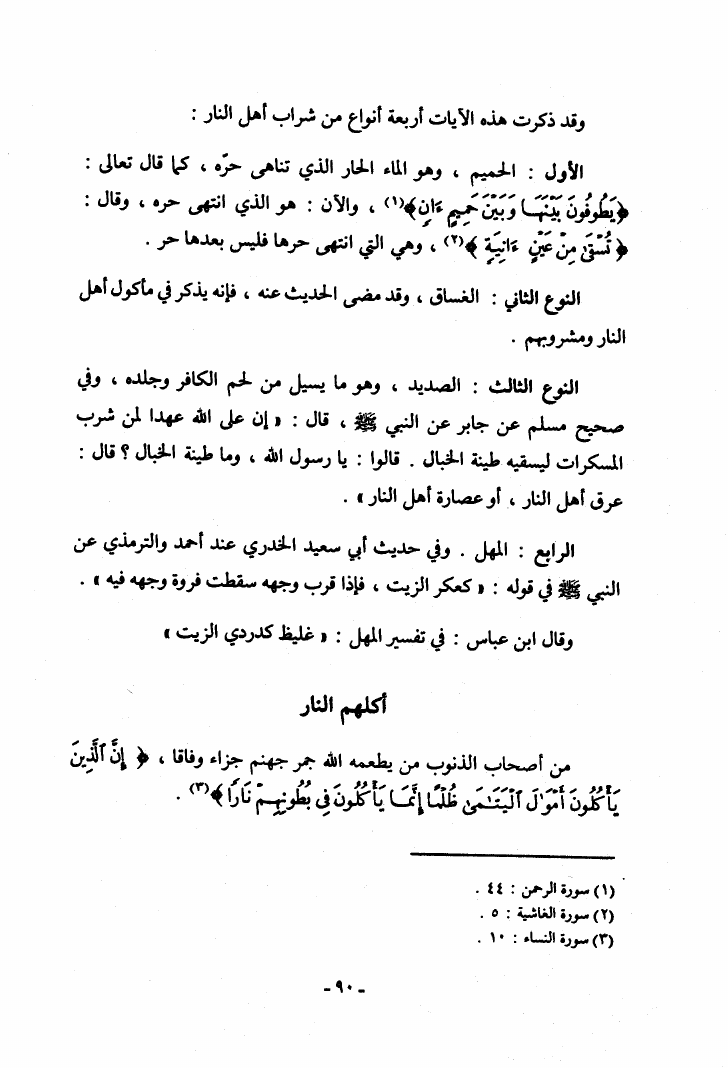 وقد ذكرت هذه الآيات أربعة أنواع من شراب أهل النار :
الأول : الحميم ، وهو الماء الحار الذي تناهى حرّه ، كما قال تعالى :
﴿يَطُوفُونَ بَيْنَهَا وَبَيْنَ حَمِيمٍ ءَانٍ﴾(١) ، والآن : هو الذي انتهى حره ، وقال :
﴿ تُسْقَىٰ مِنْ عَيْنٍ ءَانِيَةٍ ﴾(٢) ، وهي التي انتهى حرها فليس بعدها حر .
النوع الثاني : الغساق ، وقد مضى الحديث عنه ، فإنه يذكر في مأكول أهل
النار ومشروبهم .
النوع الثالث : الصديد ، وهو ما يسيل من لحم الكافر وجلده ، وفي
صحيح مسلم عن جابر عن النبي ﷺ ، قال : « إن على الله عهدا لمن شرب
المسكرات ليسقيه طينة الخبال . قالوا : يا رسول الله ، وما طينة الخبال ؟ قال :
عرق أهل النار ، أو عصارة أهل النار » .
الرابع : المهل . وفي حديث أبي سعيد الخدري عند أحمد والترمذي عن
النبي ﷺ في قوله : « كعكر الزيت ، فإذا قرب وجهه سقطت فروة وجهه فيه » .
وقال ابن عباس : في تفسير المهل : « غليظ كدردي الزيت »
أكلهم النار
من أصحاب الذنوب من يطعمه الله جمر جهنم جزاء وفاقا ، ﴿ إِنَّ ٱلَّذِينَ
يَأْكُلُونَ أَمْوَٰلَ ٱلْيَتَٰمَىٰ ظُلْمًا إِنَّمَا يَأْكُلُونَ فِى بُطُونِهِمْ نَارًا ﴾(٣) .
(١) سورة الرحمن : ٤٤ .
(٢) سورة الغاشية : ٥ .
(٣) سورة النساء : ١٠ .
- ٩٠ -